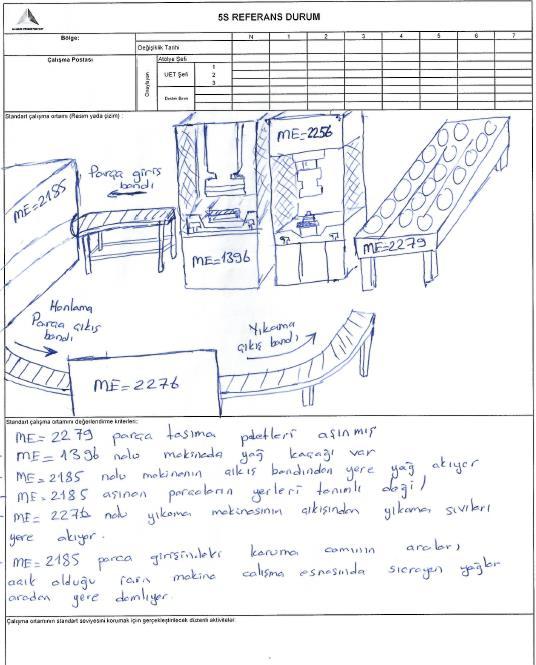 5S REFERANS DURUM
Bölge:
N 1 2 3 4 5 6 7
Değişiklik Tarihi
Çalışma Postası
Onaylayan
Atölye Şefi
UET Şefi
1
2
3
Standart çalışma ortamı (Resim yada çizim) :
ME=2185
Parça giriş
bandı
ME=1396
ME=2256
ME=2279
Honlama
Parça çıkış
bandı
ME=2276
Yıkama
çıkış bandı
Standart çalışma ortamını değerlendirme kriterleri:
ME=2279 parça taşıma paletleri aşınmış
ME=1396 nolu makinada yağ kaçağı var
ME=2185 nolu makinenin çıkış bandından yere yağ akıyor
ME=2185 aşınan parçaların yerleri tanımlı değil
ME=2276 nolu yıkama makinasının çıkışından yıkama sıvıları
yere akıyor.
ME=2185 parça girişindeki koruma camının araları
açık olduğu için makina çalışma esnasında sıçrayan yağlar
aradan yere damlıyor.
Çalışma ortamının standart seviyesini korumak için gerçekleştirilecek düzenli aktiviteler: